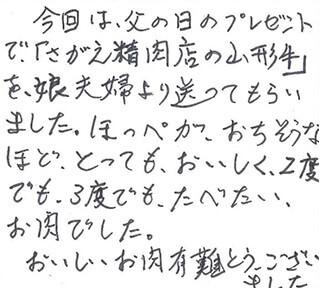 今回は、父の日のプレゼント
で、「さがえ精肉店の山形牛」
を、娘夫婦より送ってもらい
ました。ほっぺが、おちそうな
ほど、とっても、おいしく、2度
でも、3度でも、たべたい、
お肉でした。
おいしいお肉有難とう、ござい
ました